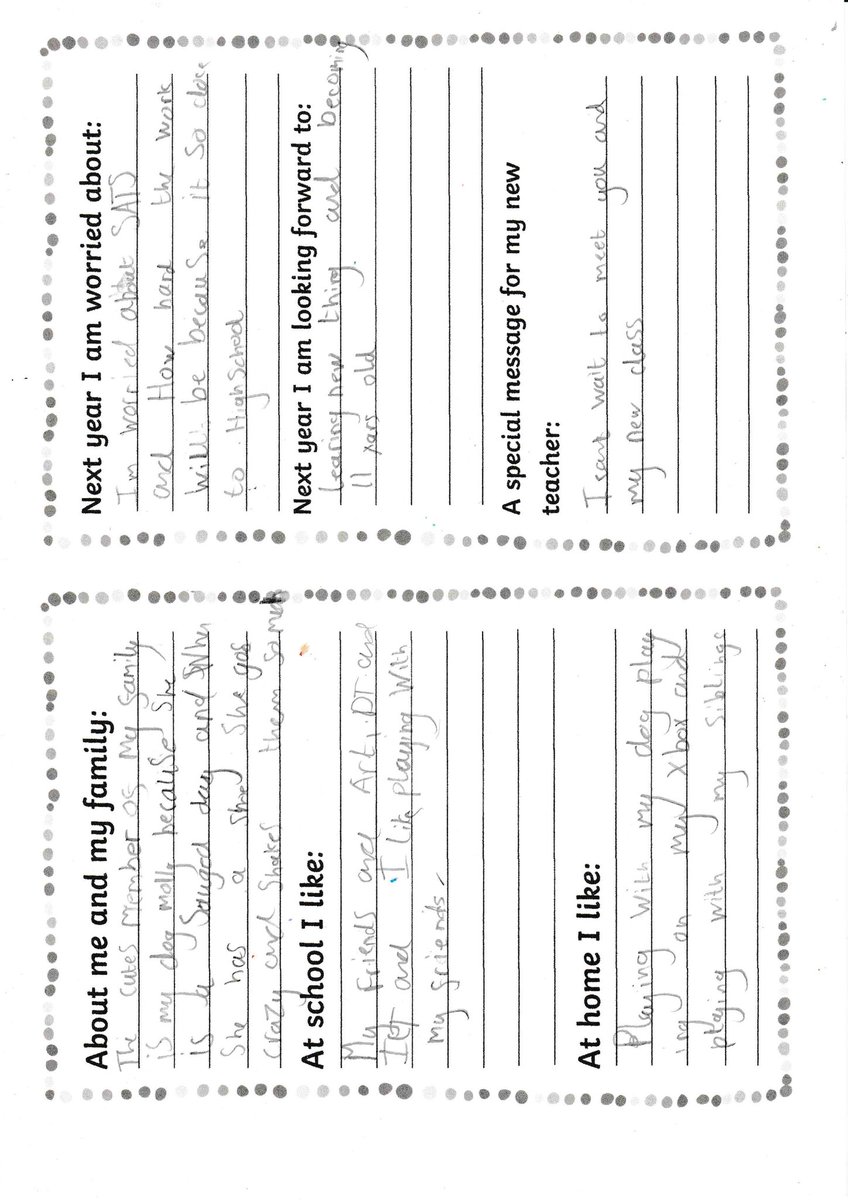 About me and my family:
The cutes member of My family
is my dog molly because she
is a day and When
She has a Shoe She gos
crazy and Shakes them
At school I like:
My Friends and Art, DT and
ICT and I like playing With
my friends.
At home I like:
Playing With my dog play
ing on my xbox and
playing with my siblings
Next year I am worried about:
I'm worried about SATS
and How hard the work
Will be because it So close
to HighSchool
Next year I am looking forward to:
Learing new thing. and becoming
11 years old
A special message for my new
teacher:
I cant wait to meet you and
my new class